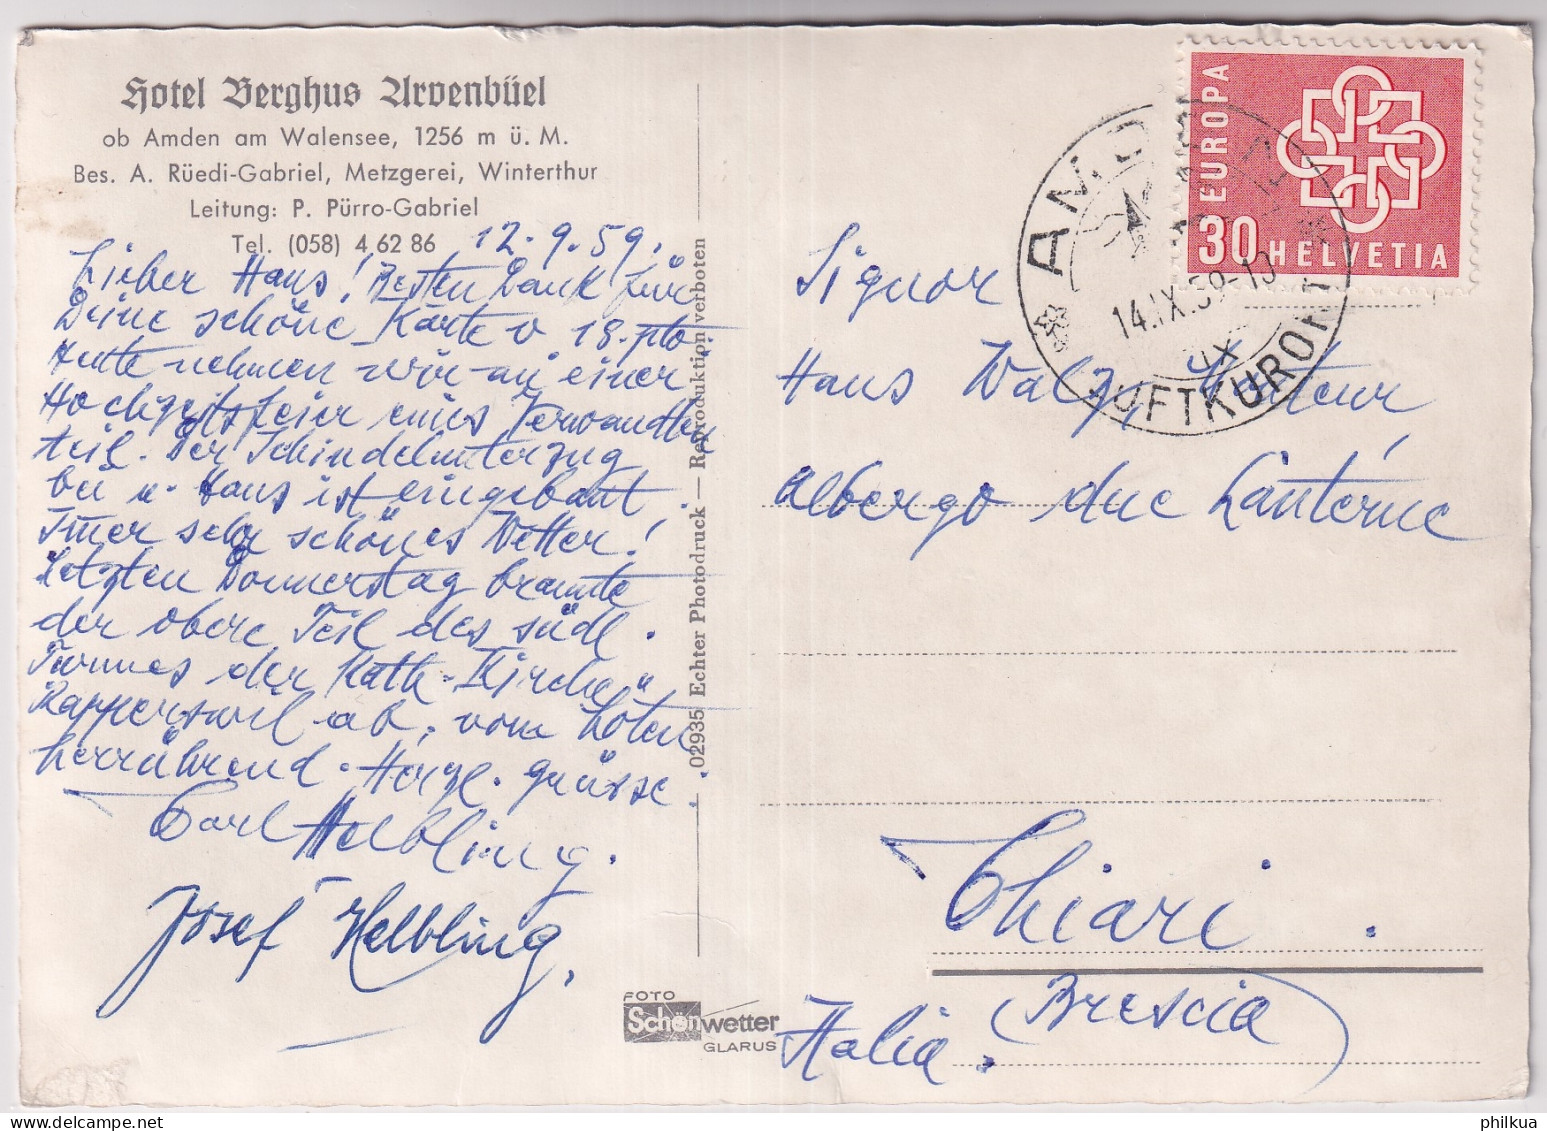 Hotel Berghus Arvenbüel
ob Amden am Walensee, 1256 m ü. M.
Bes. A. Rüedi-Gabriel, Metzgerei, Winterthur
Leitung: P. Pürro-Gabriel
Tel. (058) 4 62 86
12.9.59.
Lieber Hans! Besten Dank für
Deine schöne Karte v 18. pto.
Heute nehmen wir an einer
Hochzeitsfeier eines Verwandten
teil. Der Schindelunterzug
bei u. Haus ist eingebaut.
Imer sehr schönes Wetter!
Letzten Donnerstag brannte
der obere Teil des südl.
Turmes der Kath. Kirche
Rapperswil ab, vom Löten
herrührend. Herzl. grüsse.
Carl Helbling.
Josef Helbling,
02935 Echter Photodruck — Reproduktion verboten
FOTO
Schönwetter
GLARUS
EUROPA
30 HELVETIA
AMDEN
14.IX.59-10
LUFTKURORT
Signor
Hans Walz, Monteur
albergo due Lanterne
Chiari.
(Brescia)
Italia.
philkua.com